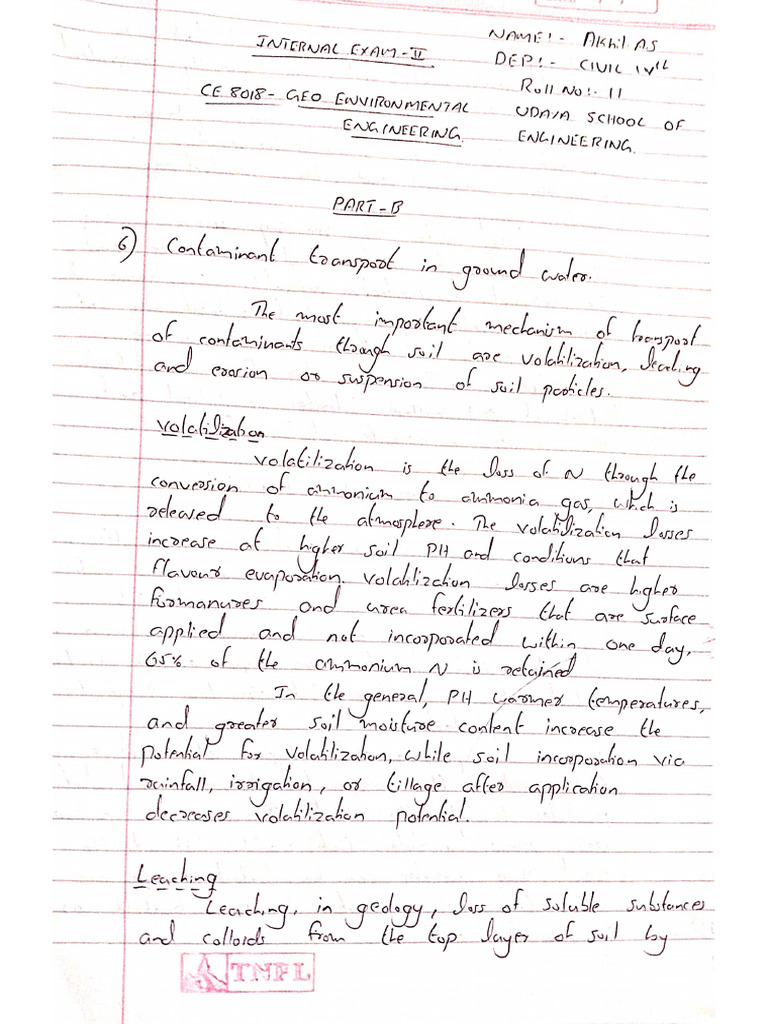 INTERNAL EXAM - II
CE 8018 - GEO ENVIRONMENTAL
ENGINEERING.
NAME! - Akhil A.S
DEP! - CIVIL IVth
Roll No! - 11
UDAYA SCHOOL OF
ENGINEERING.
PART-B
6) Contaminant transport in ground water.
The most important mechanism of transport
of contaminants through soil are volatilization, leaching
and erosion or suspension of soil particles.
Volatilization
Volatilization is the loss of N through the
conversion of ammonium to ammonia gas, which is
released to the atmosphere. The volatilization losses
increase at higher soil PH and conditions that
flavour evaporation. Volatilization losses are higher
formanures and urea fertilizers that are surface
applied and not incorporated within one day,
65% of the ammonium N is retained
In the general, PH warmer temperatures,
and greater soil moisture content increase the
potential for volatilization, while soil incorporation via
rainfall, irrigation, or tillage after application
decreases volatilization potential.
Leaching
Leaching, in geology, loss of soluble substances
and colloids from the top layer of soil by
TNPL